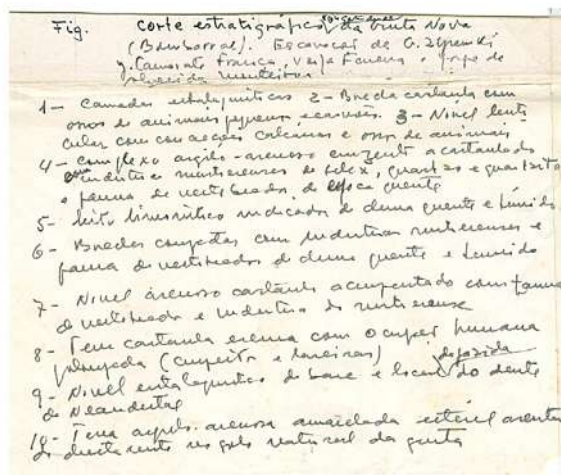 Fig. Corte estratigráfico da Gruta Nova
(Bombarral). Escavação de G. Zbyszewski
J. Camarate França, Veiga Ferreira e
1 - Camadas estalagmíticas 2 - Brecha castanha com
ossos de animais pequenos e carvões. 3 - Nível lenti
cular com concreções calcárias e ossos de animais
4 - complexo argilo-arenoso cinzento acastanhado
indústrias musterienses de sílex, quartzo e quartzito
e fauna de vertebrados de época quente
5 - leito limonítico indicador de clima quente e húmido
6 - Brechas compactas com indústrias musterienses e
fauna de vertebrados de clima quente e húmido
7 - Nível arenoso castanho acinzentado com fauna
de vertebrados e indústria do musterense
8 - Terra castanha escura com ocupação humana
prolongada (e lareiras)
9 - Nível estalagmítico de base e local da jazida do dente
de Neandertal
10 - Terra argilo-arenosa amarelada estéril assenta
da directamente no solo natural da gruta